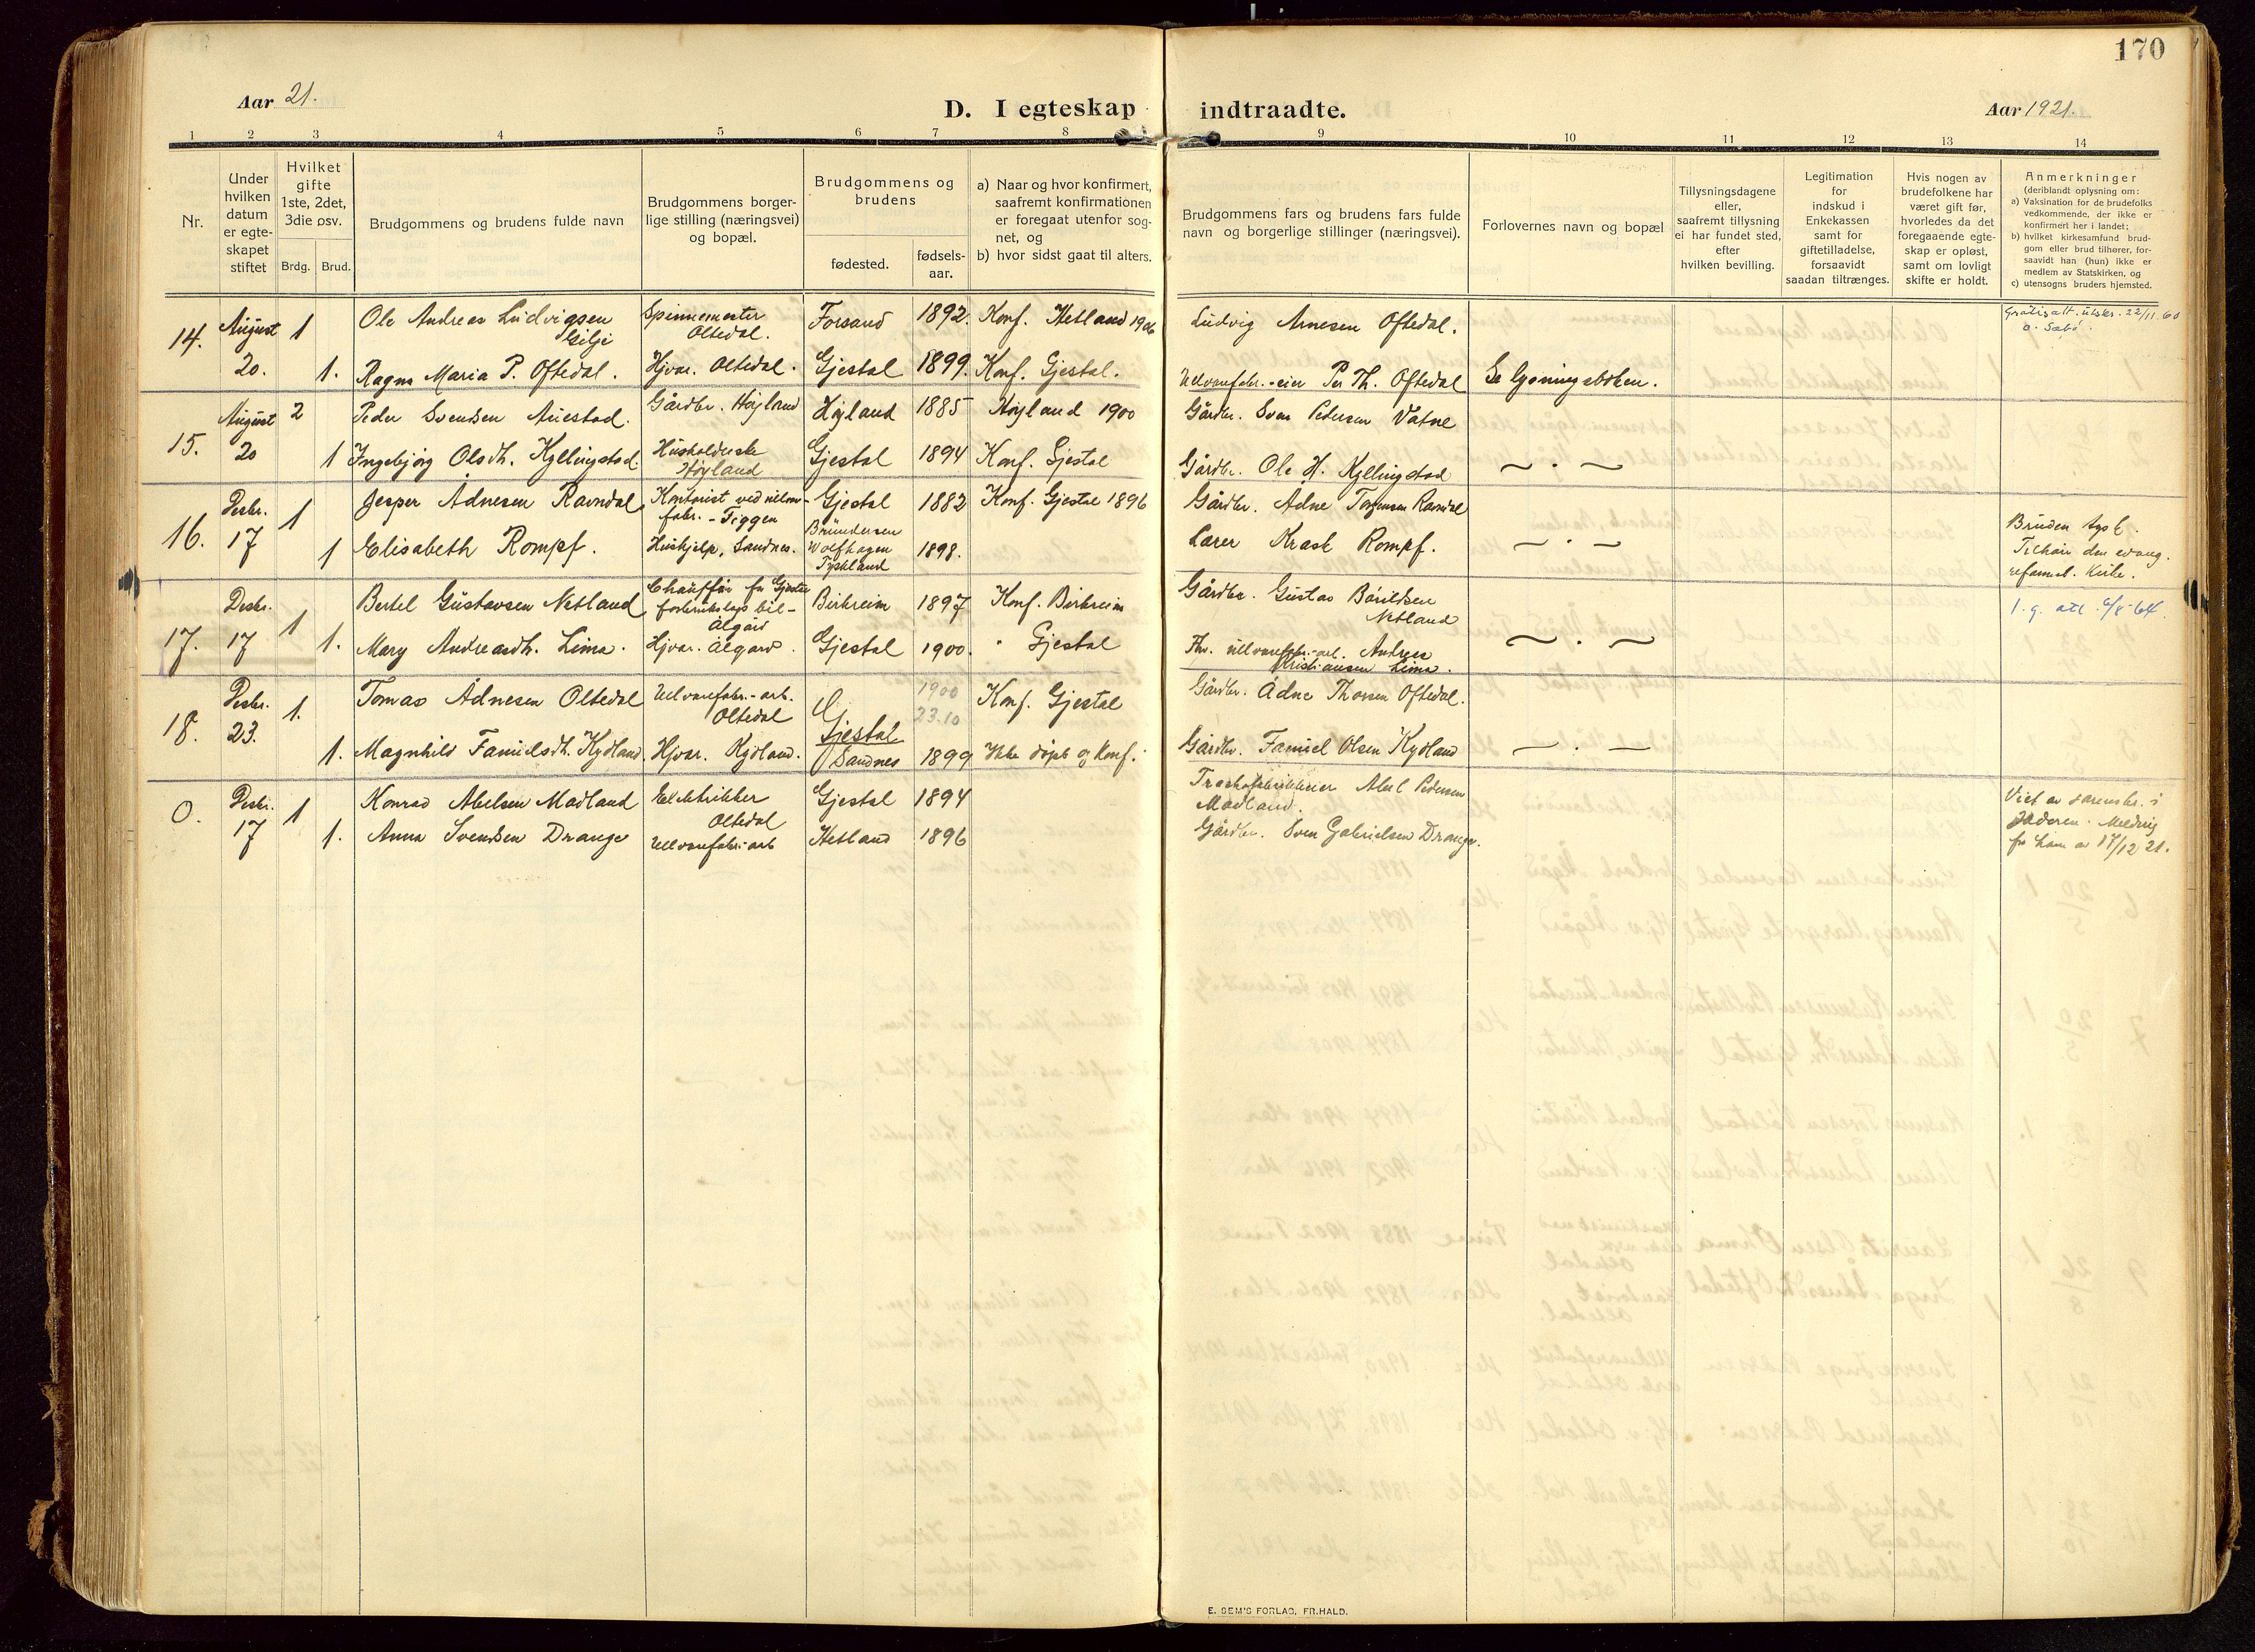 170
Aar 21.
D. I egteskap indtraadte.
Aar 1921.
1 2 3 4 5 6 7 8 9 10 11 12 13 14
Nr.
Under
hvilken
datum
er egte-
skapet
stiftet
Hvilket
gifte
1ste, 2det,
3die osv.
Brdg. Brud.
Brudgommens og brudens fulde navn
Brudgommens borger-
lige stilling (næringsvei)
og bopæl.
Brudgommens og
brudens
fødested.
fødsels-
aar.
a) Naar og hvor konfirmert,
saafremt konfirmationen
er foregaat utenfor sog-
net, og
b) hvor sidst gaat til alters.
Brudgommens fars og brudens fars fulde
navn og borgerlige stillinger (næringsvei).
Forlovernes navn og bopæl
Tillysningsdagene
eller,
saafremt tillysning
ei har fundet sted,
efter
hvilken bevilling.
Legitimation
for
indskud i
Enkekassen
samt for
giftetilladelse,
forsaavidt
saadan tiltrænges.
Hvis nogen av
brudefolkene har
været gift før,
hvorledes da det
foregaaende egte-
skap er opløst,
samt om lovligt
skifte er holdt.
Anmerkninger
(deriblandt oplysning om:
a) Vaksination for de brudefolks
vedkommende, der ikke er
konfirmert her i landet;
b) hvilket kirkesamfund brud-
gom eller brud tilhører, for-
saavidt han (hun) ikke er
medlem av Statskirken, og
c) utensogns bruders hjemsted.
14. August 20. 1 Ole Andreas Ludvigsen Gilje Spinnemester Oltedal. Forsand 1892. Konf. Hetland 1906 Ludvig Arnesen Oftedal. Gratis att. utskr. 22/11.60
1. Ragna Maria P. Oftedal. Hjvar. Oltedal. Gjestal 1899. Konf. Gjestal. Uldvarefabr.-eier Per Th. Oftedal Se lysningsboken.
15. August 20 2 Peder Svendsen Auestad. Gårdbr. Høyland Høyland 1885 Høyland 1900 Gårdbr. Sven Pedersen Vatne
1 Ingebjørg Olsdh. Kyllingstad Husholderske Høyland Gjestal 1894 Konf. Gjestal Gårdbr. Ole H. Kyllingstad ~ . ~
16. Desbr. 17 1 Jesper Ådnesen Ravndal Kontorist ved uldv-fabr. - Figgen Gjestal 1882 Konf. Gjestal 1896 Gårdbr. Ådne Ravndal
1 Elisabeth Rompf. Hushjelp, Sandnes. Bründersen Wolfhagen Tyskland 1898. Lærer Rompf. ~ . ~ Bruden tysk. Tilhør den evang. reformt. Kirke.
17. Desbr. 17 1 Bertel Gustavsen Netland Chauffør for Gjestal forbrukslags bil - Ålgård Birkreim 1897 Konf. Birkreim Gårdbr. Gustav Bårdsen Netland 1.g. att. 6/8-64.
1. Mary Andreasdh. Lima. Hjvar. Ålgård. Gjestal 1900. " Gjestal Fhv. uldvarefabr.-arb. Andreas Kristiansen Lima. ~ . ~
18. Desbr. 23. 1. Tomas Ådnesen Oltedal Uldvarefabr.-arb. Oltedal Gjestal 1900 23.10 Konf. Gjestal Gårdbr. Ådne Thorsen Oftedal.
1. Magnhild Famuelsdh. Kydland Hjvar. Kydland. Sandnes 1899 Ikke døpt og konf. Gårdbr. Famuel Olsen Kydland ~ . ~
0. Desbr. 17 1 Konrad Abelsen Madland Elektrikker Oltedal Gjestal 1894 Abel Pedersen Madland. Viet av sorenskr. i Jæderen. Melding fra ham av 17/12 21.
1. Anna Svendsen Drange Uldvarefabr.-arb Hetland 1896 Gårdbr. Sven Gabrielsen Drange.
E. SEM'S FORLAG, FR.HALD.